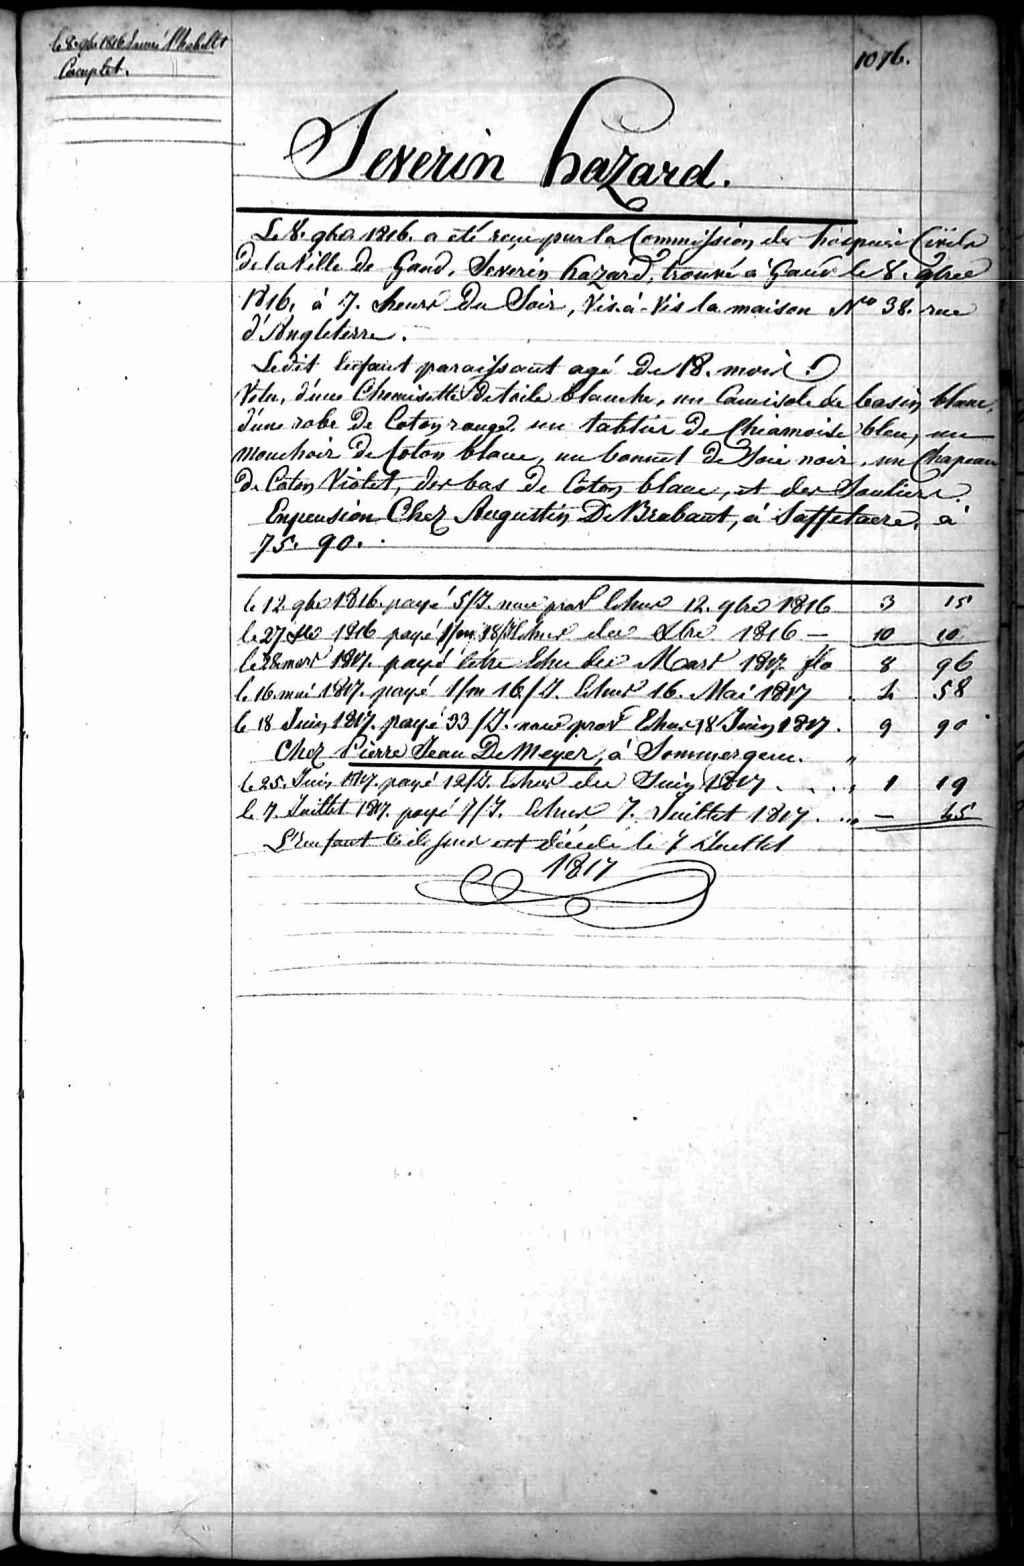 le 8. gbre 1816 donné l'habillt
Complet.
1076.
Severin hazard.
Le 8. gbre 1816. a été reçu par la Commission des hospices Civils
de la Ville de Gand, Séverin hazard, trouvé à Gand le 8. gbre
1816, à 7. heures du Soir, Vis-à-Vis la maison No 38. rue
d'Angleterre.
Ledit Enfant paraissant agé de 18. mois.
Vétu, d'une Chemisette de toile blanche, un Camisole de basin blanc,
d'une robe de Coton rouge, un tablier de Chiamoise bleu, un
mouchoir de Coton blanc, un bonnet de Soie noir, un Chapeau
de Coton Violet, des bas de Coton blanc, et des Souliers.
En pension Chez Augustin De Brabant, à Saffelaere, à
75. 90.
le 12. gbre 1816. payé 5/J. nour prov Echus 12. gbre 1816 3 15
le 27 1816 payé 1/m 18/J Echus du Xbre 1816 — 10 10
le 28 mars 1817. payé Echu du Mars 1817. flo 8 96
le 16. mai 1817. payé 1/m 16/J. Echus 16. Mai 1817 . 4 58
le 18 Juin 1817. payé 33/J. nour prov Echus 18 Juin 1817. 9 90
Chez Pierre Jean De Meyer, à Sommergem. "
le 25. Juin 1817. payé 12/J. Echus du Juin 1817 . . . " 1 19
le 7. Juillet 1817. payé 7/J. Echus 7. Juillet 1817 . . " — 45
L'Enfant ci dessus est décédé le 7 Juillet
1817